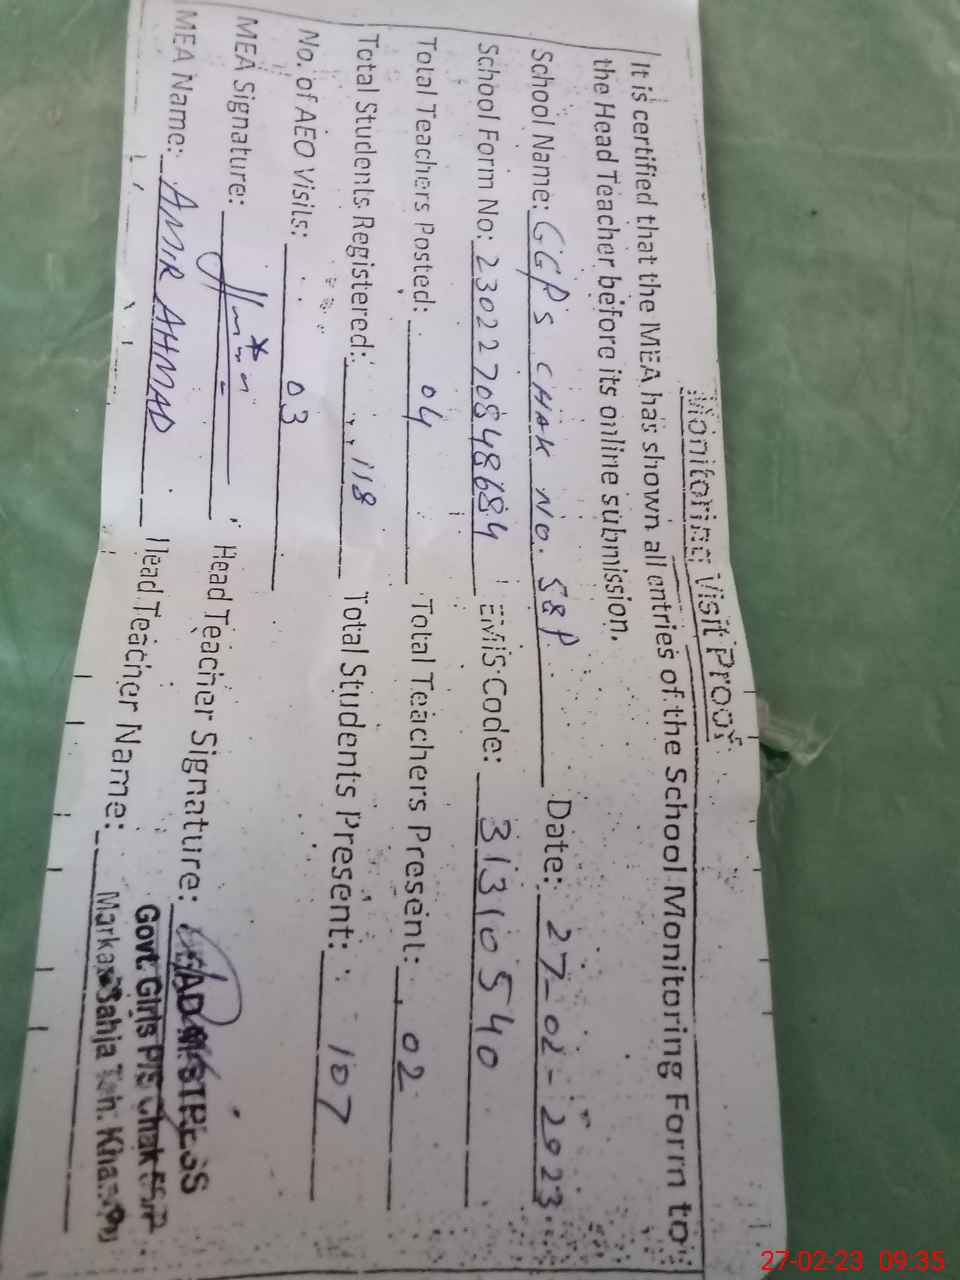 Monitoring Visit Proof
It is certified that the MEA has shown all entries of the School Monitoring Form to
the Head Teacher before its online submission.
School Name: GGPS CHAK NO. 58P Date: 27-02-2023
School Form No: 2302270848684 EMIS Code: 31310540
Total Teachers Posted: 04 Total Teachers Present: 02
Total Students Registered: 118 Total Students Present: 107
No. of AEO Visits: 03
MEA Signature: Head Teacher Signature: HEAD MISTRESS
Govt. Girls P/S Chak
MEA Name: AMIR AHMAD Head Teacher Name: Markaz Sahja Teh.
27-02-23 09:35